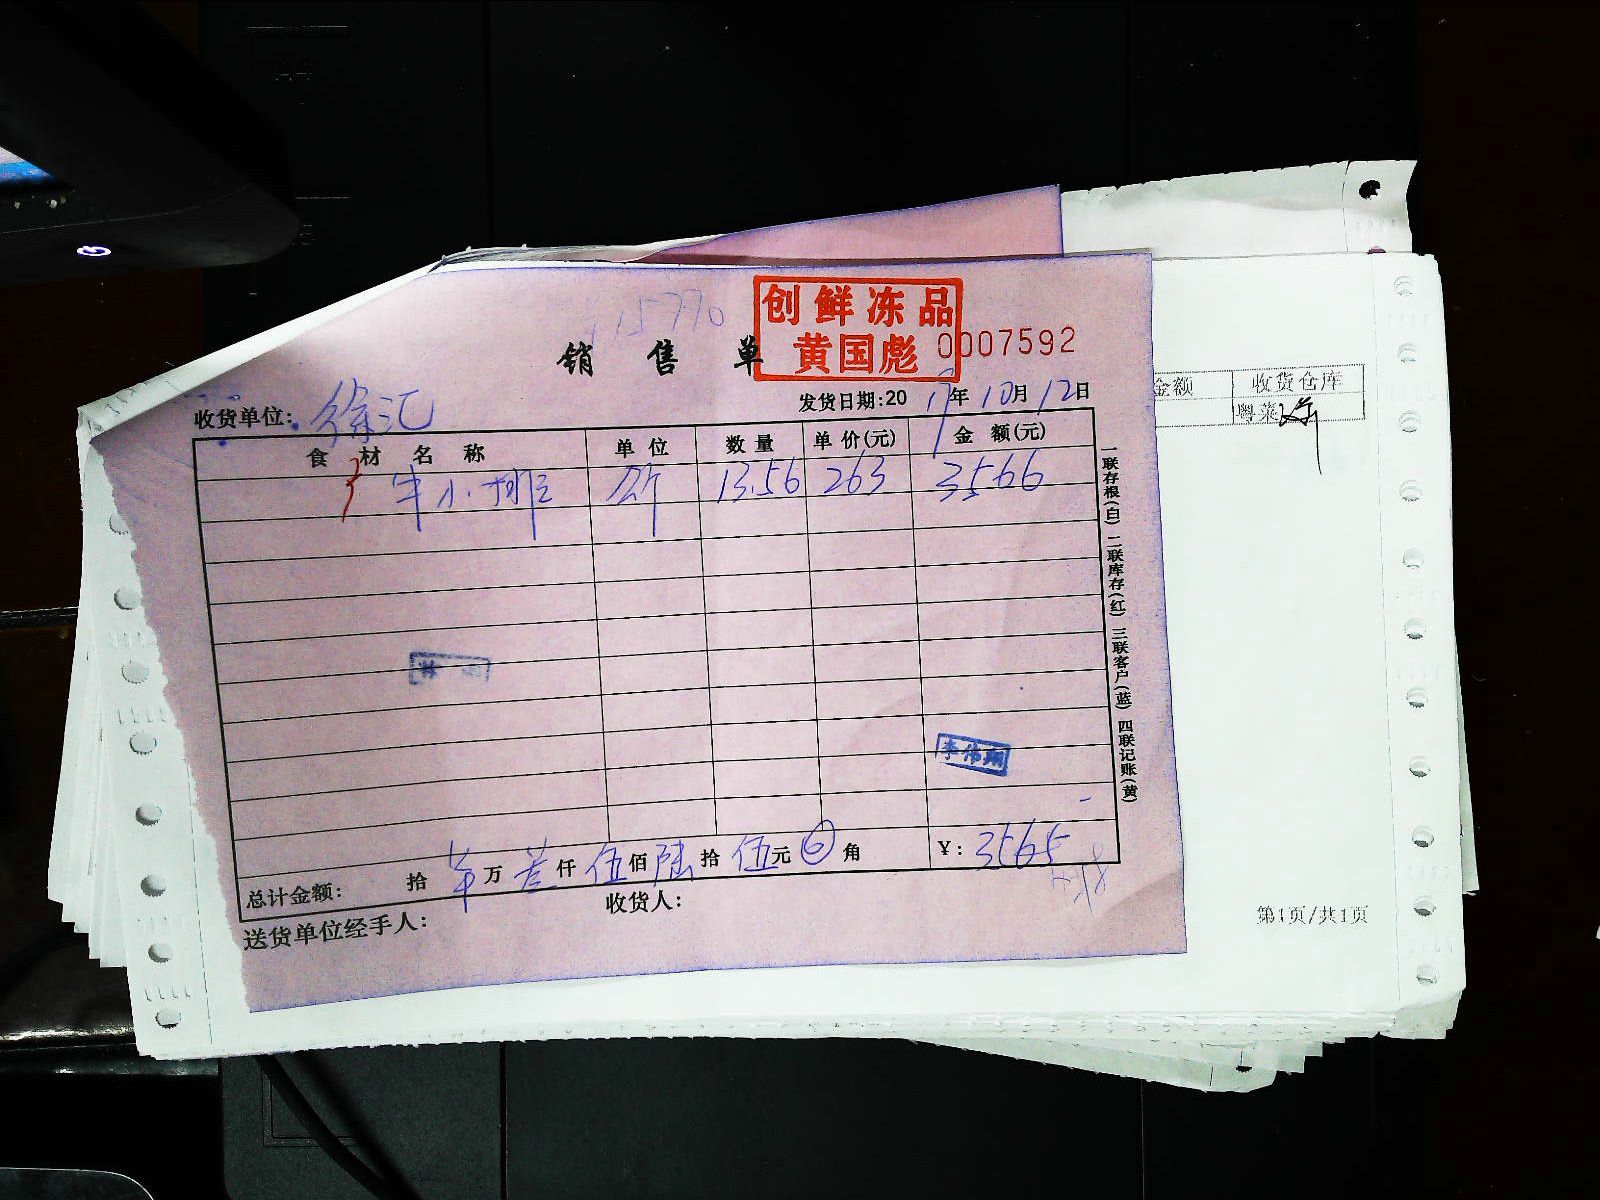 15770
创鲜冻品
黄国彪
销售单
0007592
收货单位: 徐汇
发货日期:2019年10月12日
食材名称 单位 数量 单价(元) 金额(元)
牛小排 公斤 13.56 263 3566
李伟翔
总计金额: 拾 万 叁仟 伍佰 陆拾 伍元 0角 ¥: 3565
送货单位经手人: 收货人:
一联存根(白) 二联库存(红) 三联客户(蓝) 四联记账(黄)
金额 收货仓库
粤菜
第1页/共1页